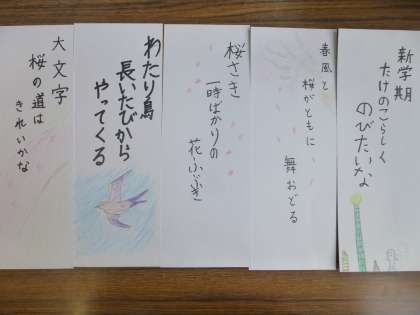 新学期
たけのこらしく
のびたいな
春風と
桜がともに
舞おどる
桜さき
一時ばかりの
花ふぶき
わたり鳥
長いたびから
やってくる
大文字
桜の道は
きれいかな